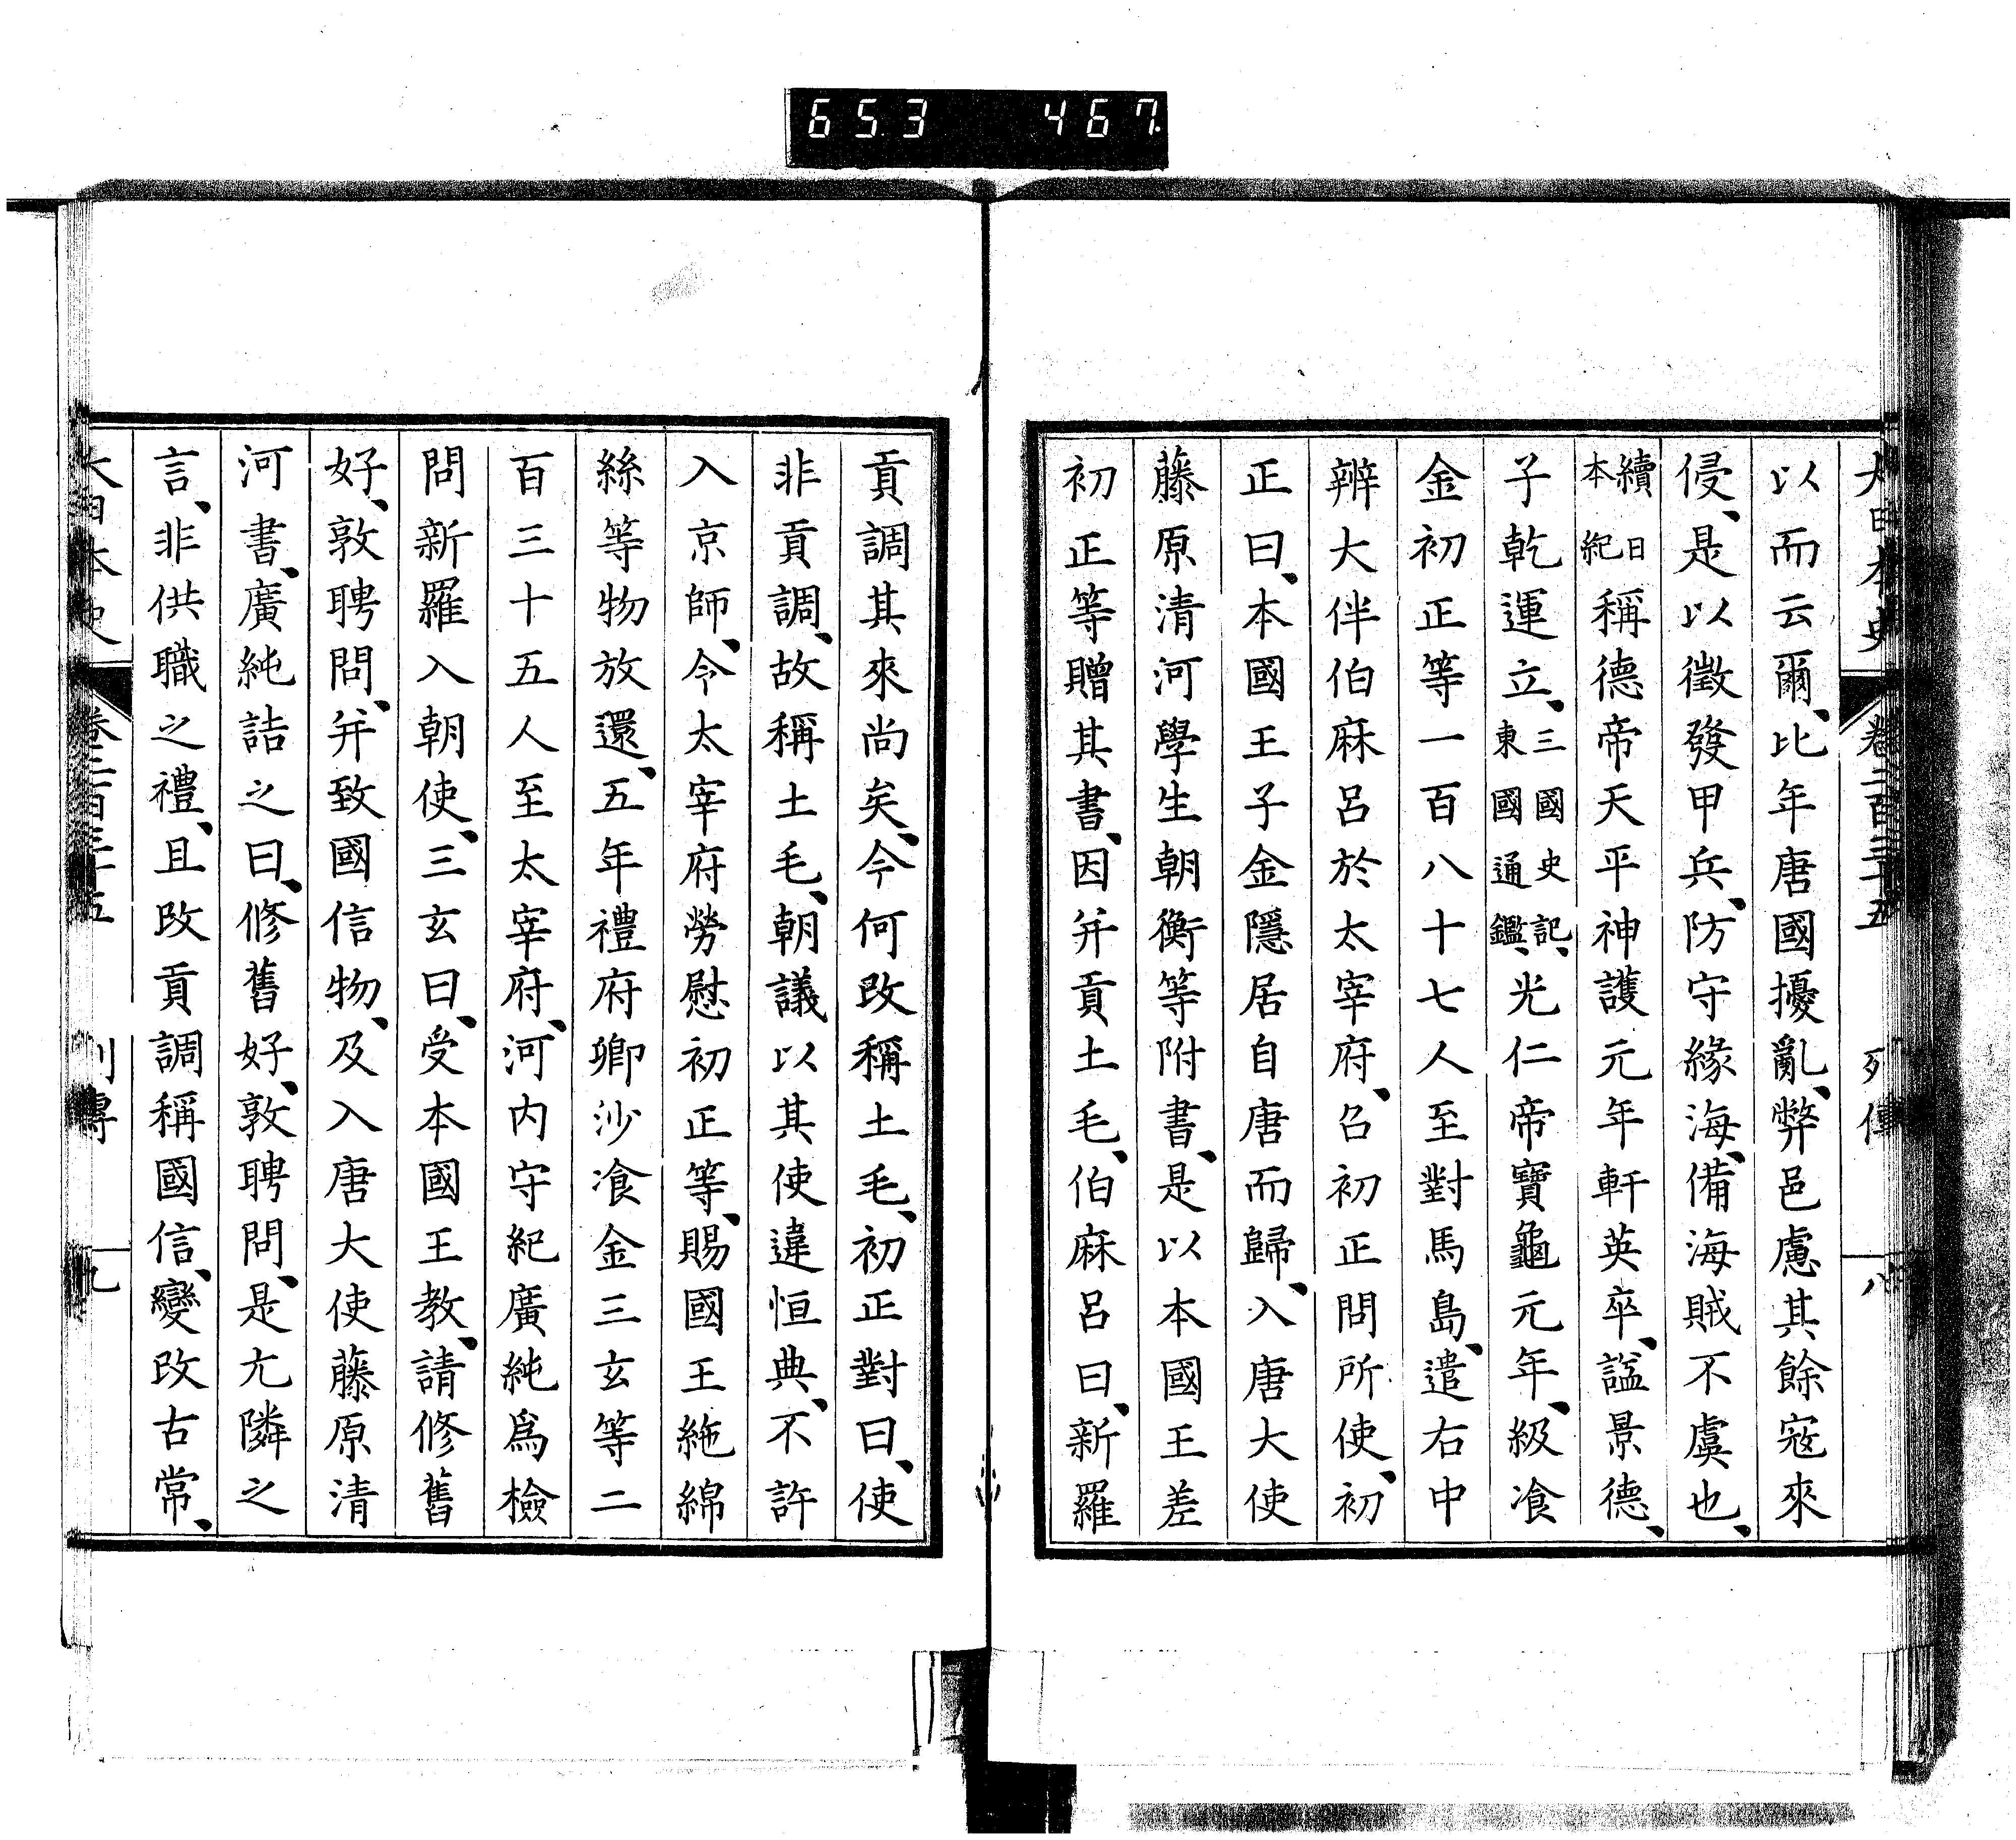 653 467
大日本史 卷二百三十五 列傳 八
以而云爾、比年唐國擾亂、弊邑慮其餘寇來
侵、是以徵發甲兵、防守緣海、備海賊不虞也、
續日本紀稱德帝天平神護元年軒英卒、諡景德、
子乾運立、三國史記、東國通鑑、光仁帝寶龜元年、級飡
金初正等一百八十七人至對馬島、遣右中
辨大伴伯麻呂於太宰府、召初正問所使、初
正曰、本國王子金隱居自唐而歸、入唐大使
藤原清河學生朝衡等附書、是以本國王差
初正等贈其書、因并貢土毛、伯麻呂曰、新羅
貢調其來尚矣、今何改稱土毛、初正對曰、使
非貢調、故稱土毛、朝議以其使違恒典、不許
入京師、令太宰府勞慰初正等、賜國王絁綿
絲等物放還、五年禮府卿沙飡金三玄等二
百三十五人至太宰府、河內守紀廣純爲檢
問新羅入朝使、三玄曰、受本國王教、請修舊
好、敦聘問、并致國信物、及入唐大使藤原清
河書、廣純詰之曰、修舊好、敦聘問、是亢隣之
言、非供職之禮、且改貢調稱國信、變改古常、
大日本史 卷二百三十五 列傳 九